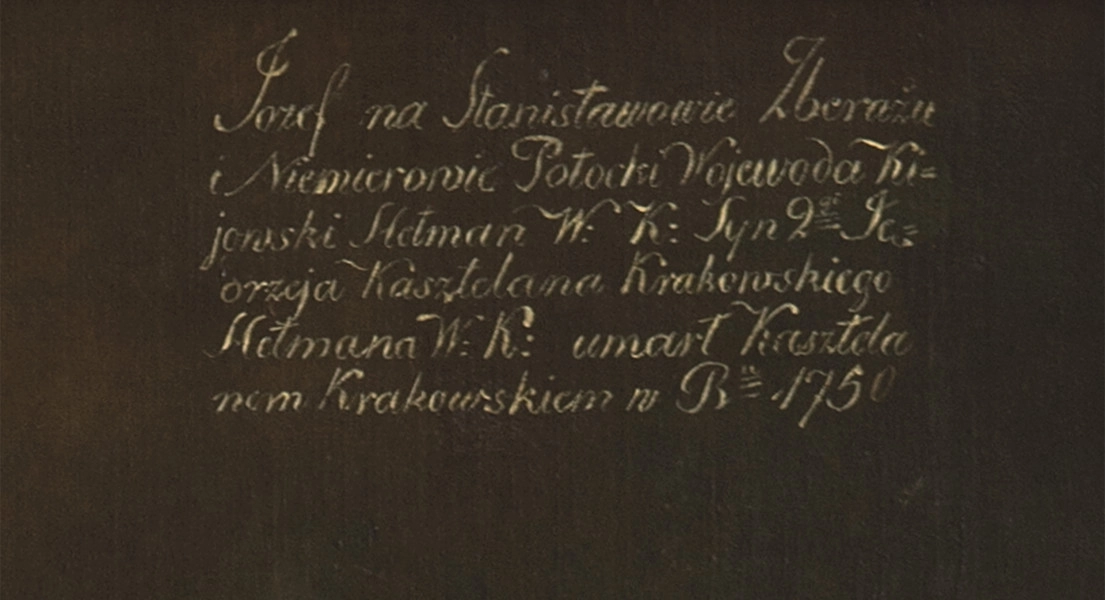 Jozef na Stanisławowie Zbarażu
i Niemierowie Potocki Wojewoda Ki=
jowski Hetman W: K: Syn 2gi Je=
orzeja Kasztelana Krakowskiego
Hetmana W: K: umarł Kasztela
nem Krakowskiem w Ru 1750